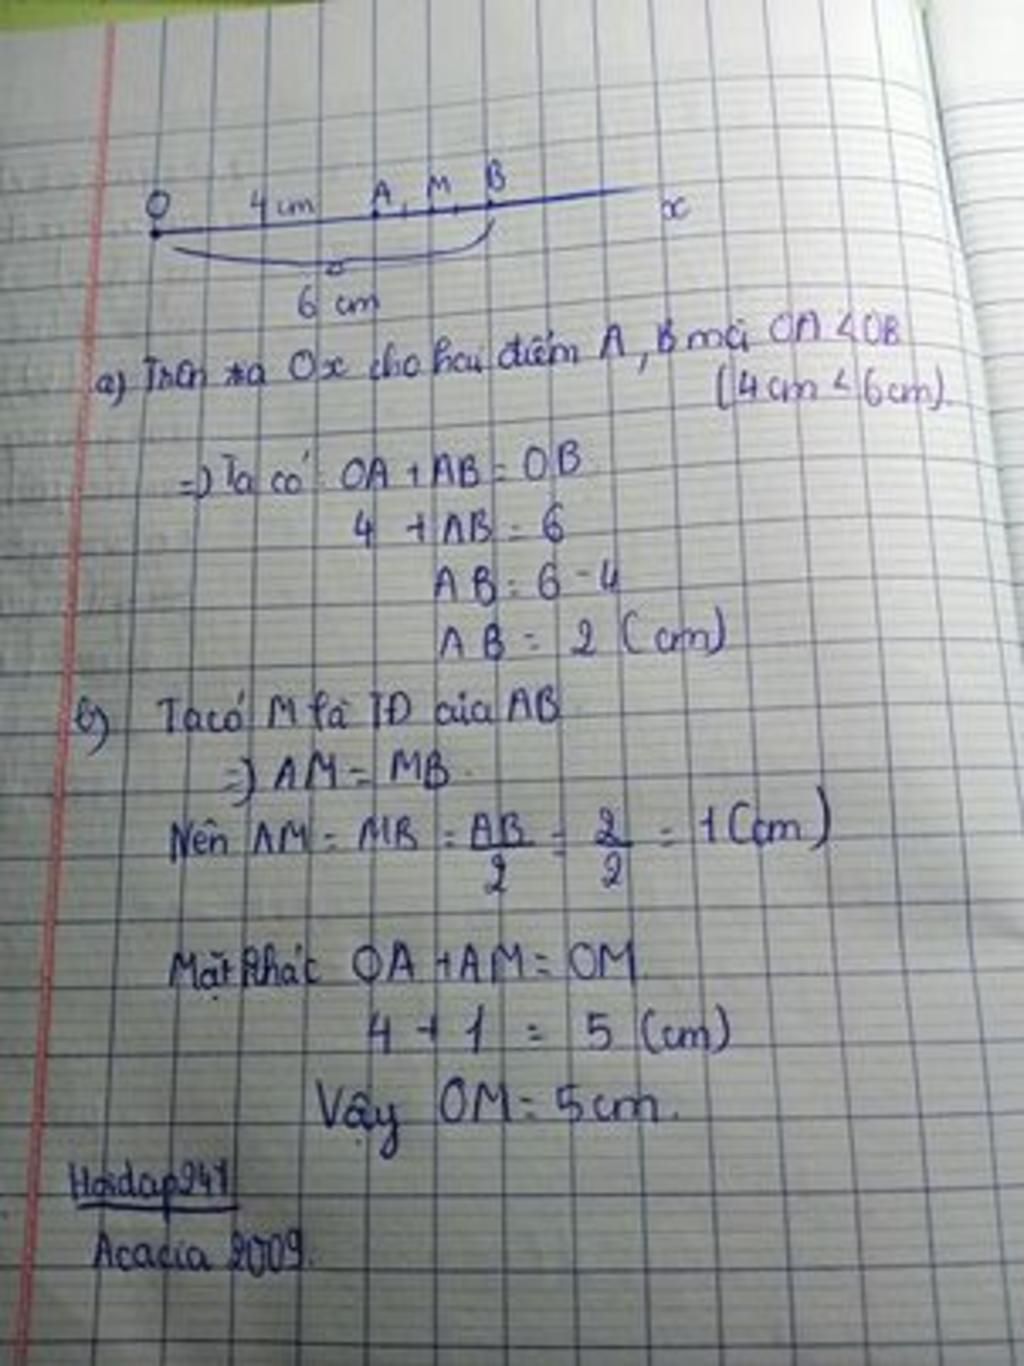 O 4cm A M B x
6 cm
a) Trên tia Ox cho hai điểm A, B mà OA < OB
(4cm < 6cm)
=) Ta có OA + AB = OB
4 + AB = 6
AB = 6 - 4
AB = 2 (cm)
b) Ta có M là TĐ của AB
=) AM = MB.
Nên AM = MB = AB/2 = 2/2 = 1 (cm)
Mặt khác OA + AM = OM
4 + 1 = 5 (cm)
Vậy OM = 5cm.
Hoidap247
Acacia 2009.